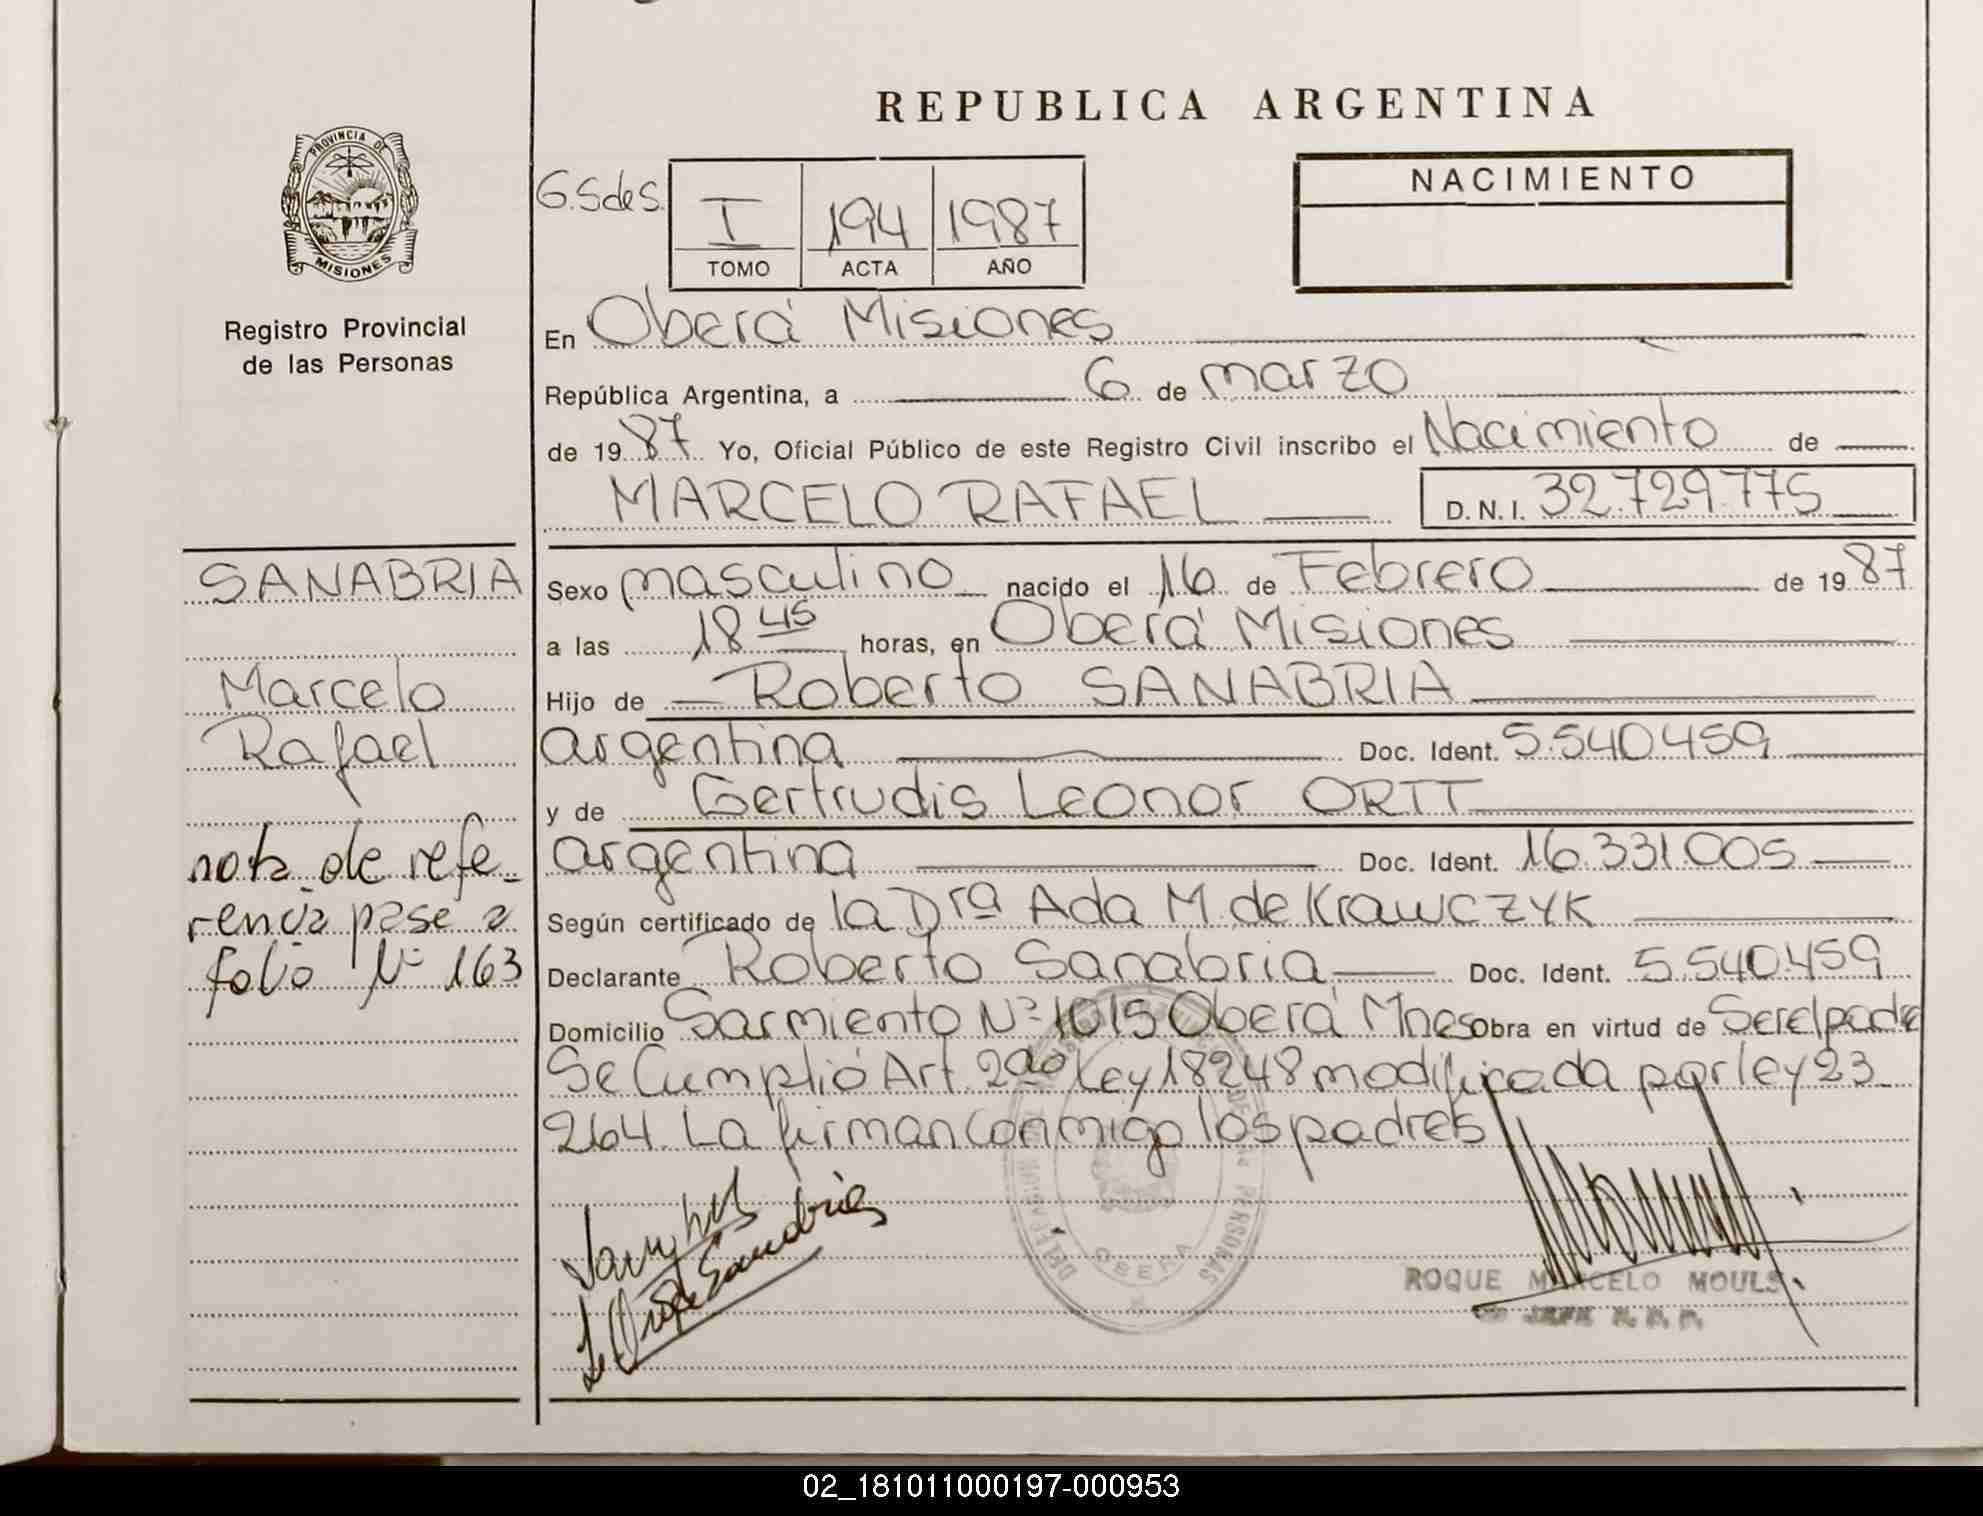 REPUBLICA ARGENTINA
PROVINCIA DE
MISIONES
Registro Provincial
de las Personas
G.SdeS.
I 194 1987
TOMO ACTA AÑO
NACIMIENTO
En Oberá Misiones
República Argentina, a 6 de marzo
de 1987 Yo, Oficial Público de este Registro Civil inscribo el Nacimiento de
MARCELO RAFAEL D.N.I. 32.729.775
SANABRIA
Marcelo
Rafael
nota de refe-
rencia pase a
folio Nº 163
Sexo masculino nacido el 16 de Febrero de 1987
a las 18 45 horas, en Oberá Misiones
Hijo de Roberto SANABRIA
argentina Doc. Ident. 5.540.459
y de Gertrudis Leonor ORTT
argentina Doc. Ident. 16.331.005
Según certificado de la Drª Ada M. de Krawczyk
Declarante Roberto Sanabria Doc. Ident. 5.540.459
Domicilio Sarmiento Nº 1015 Oberá Mnes Obra en virtud de Ser el padre
Se Cumplió Art. 2do Ley 18248 modificada por ley 23
264. La firman conmigo los padres
OBERA
ROQUE MARCELO MOULS
JEFE R. P. P.
02_181011000197-000953